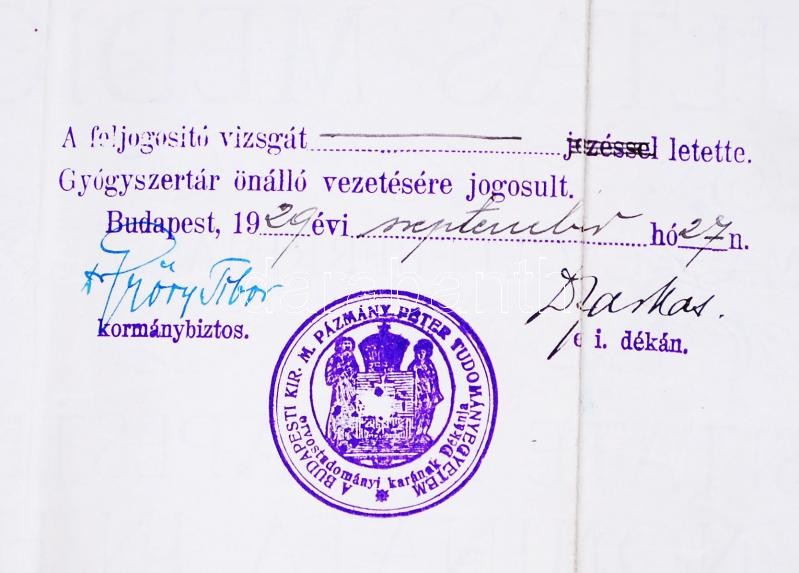 A feljogosító vizsgát jezéssel letette.
Gyógyszertár önálló vezetésére jogosult.
Budapest, 1929 évi september hó 27 n.
dr Győry Tibor
kormánybiztos.
Dr Farkas.
e. i. dékán.
A BUDAPESTI KIR. M. PÁZMÁNY PÉTER TUDOMÁNYEGYETEM
orvostudományi karának Dékánja
darabanth